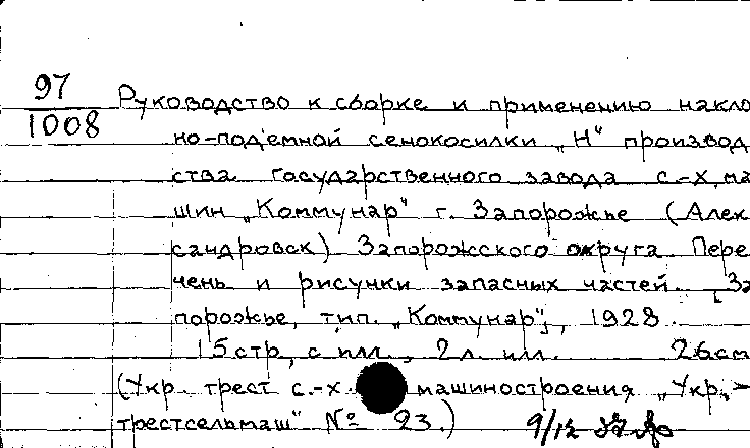 97
1008
Руководство к сборке и применению накло
но-под'емной сенокосилки „Н" производ
ства государственного завода с.-х. ма
шин „Коммунар" г. Запорожье (Алек
сандровск) Запорожского округа Пере
чень и рисунки запасных частей. За
порожье, тип. „Коммунар", 1928.
15 стр, с илл., 2 л. илл. 26 см
(Укр. трест с.-х. машиностроения „Укр.-
трестсельмаш" № 23.)
9/12